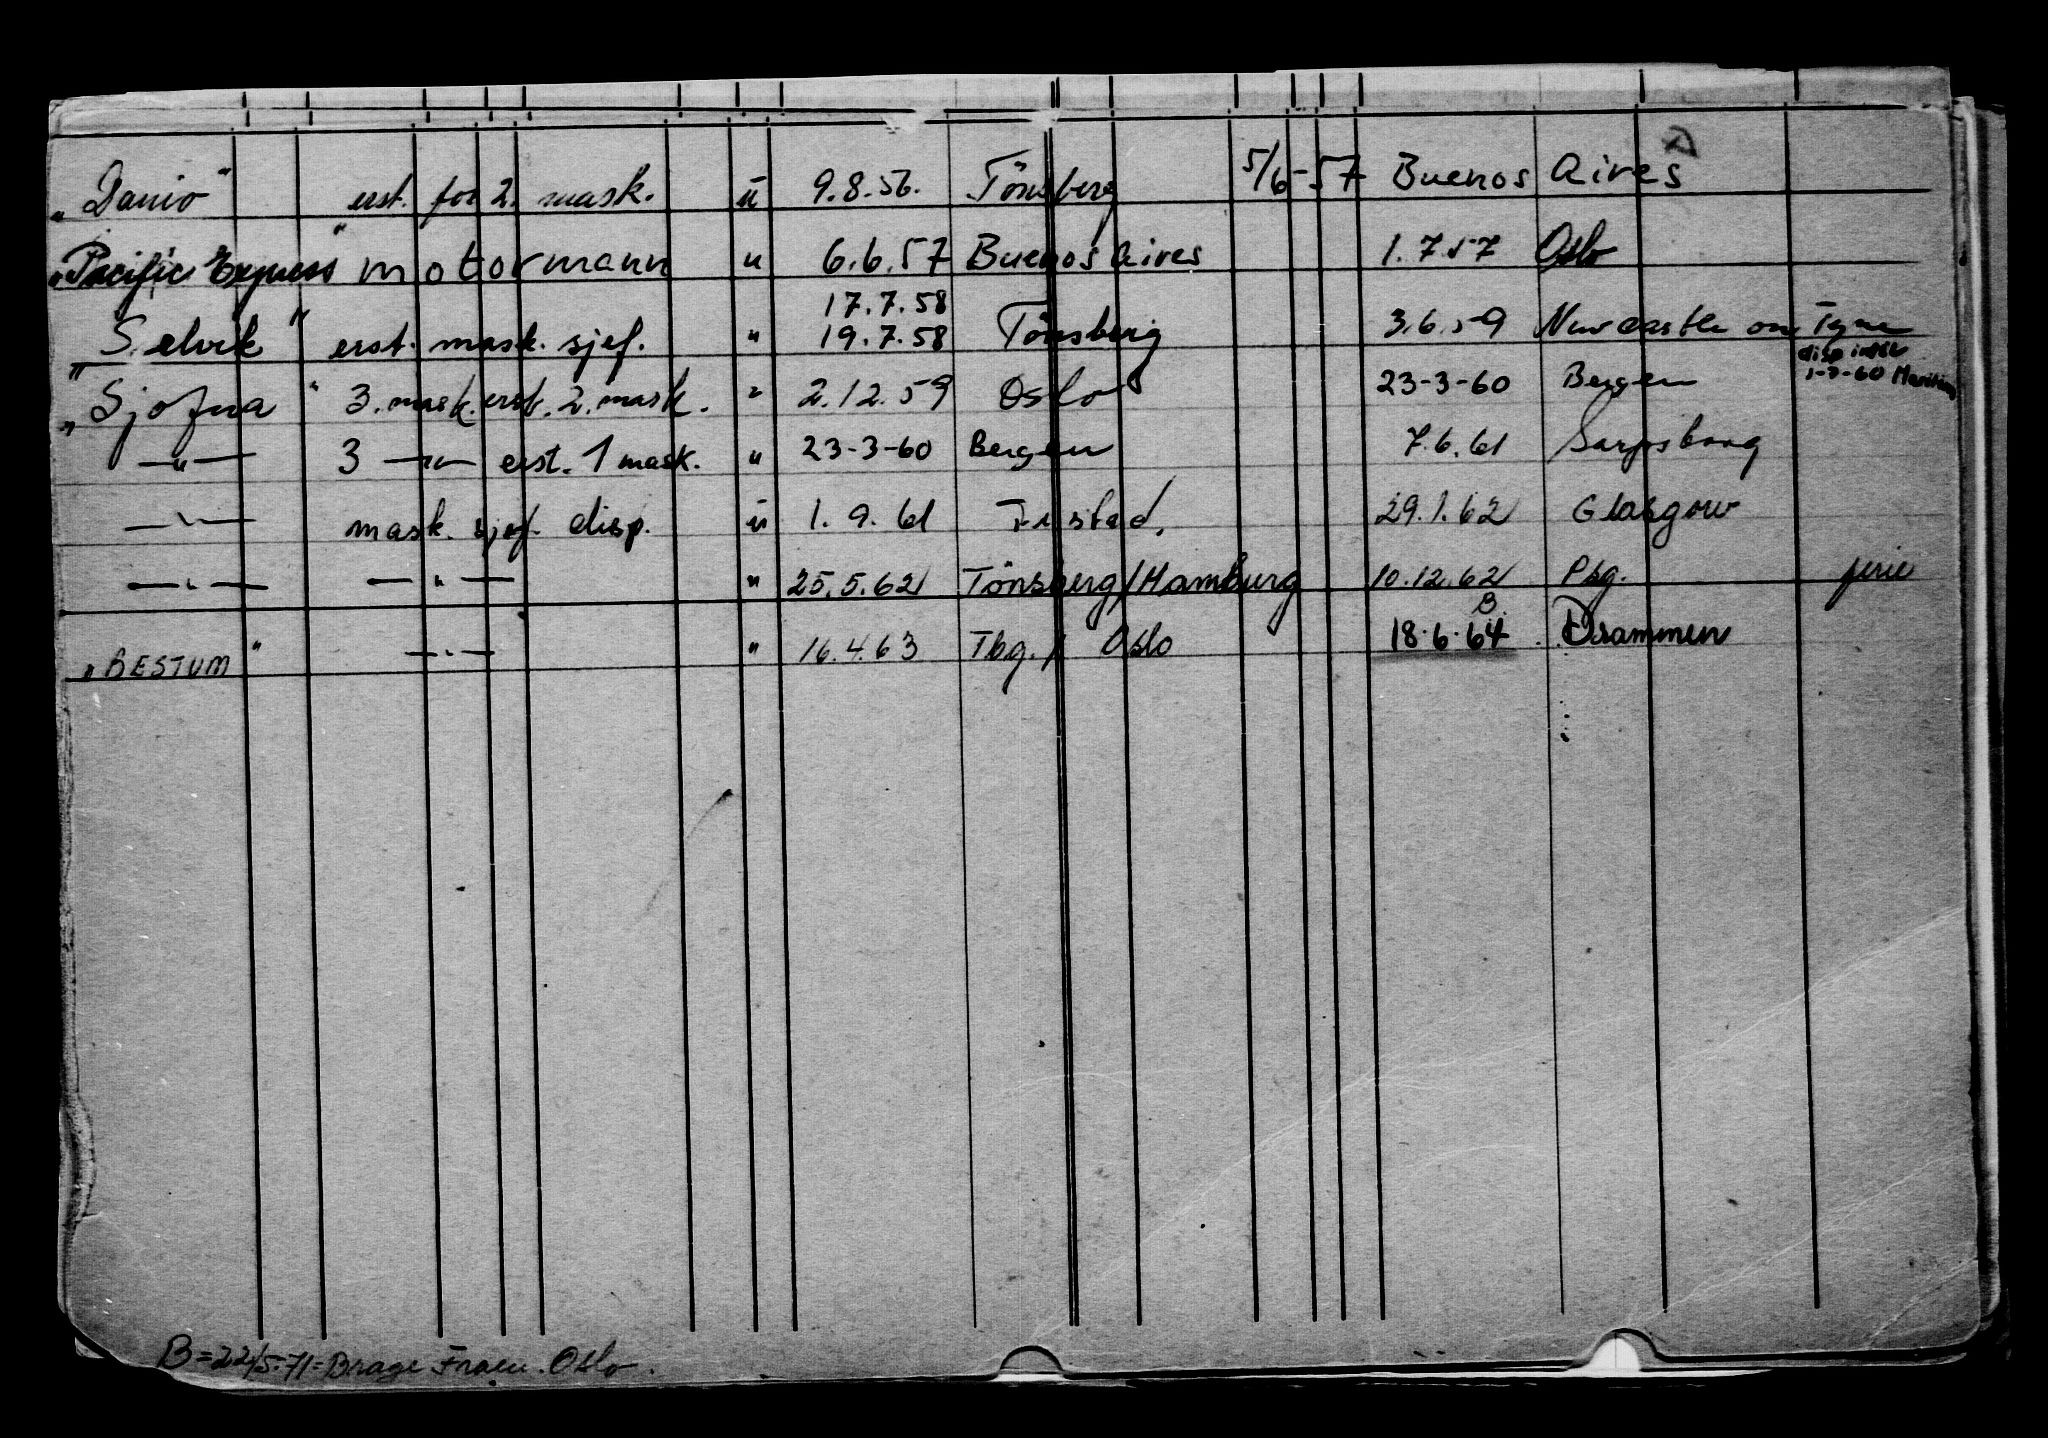 "Danio" erst. for 2. mask. " 9.8.56. Tönsberg 5/6-57 Buenos Aires
"Pacific Express" motormann " 6.6.57 Buenos Aires 1.7.57 Oslo
17.7.58
"Selvik" erst. mask. sjef. " 19.7.58 Tönsberg 3.6.59 Newcastle on Tyne
"Sjofna" 3. mask. erst. 2. mask. " 2.12.59 Oslo 23-3-60 Bergen
—"— 3 —"— erst. 1 mask. " 23-3-60 Bergen 7.6.61 Sarpsborg
—"— mask. sjef. disp. " 1.9.61 Fr.stad. 29.1.62 Glasgow
—"— —"— " 25.5.62 Tönsberg/Hamburg 10.12.62 ferie
B.
"BESTUM" —"— " 16.4.63 Tbg./ Oslo 18.6.64 Drammen
B=22/5-71= Brage Oslo.